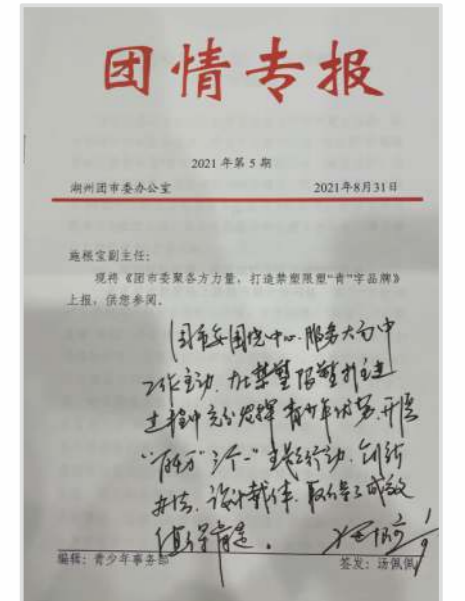 团情专报
2021年第5期
湖州团市委办公室 2021年8月31日
施根宝副主任:
现将《团市委聚各方力量,打造禁塑限塑“青”字品牌》
上报,供您参阅。
团市委围绕中心、服务大局中
工作主动,在禁塑限塑推进
过程中充分发挥青少年优势,开展
主题行动,创新
办法,设计载体,取得了成效
值得肯定。
1/9
编辑:青少年事务部 签发:汤佩佩